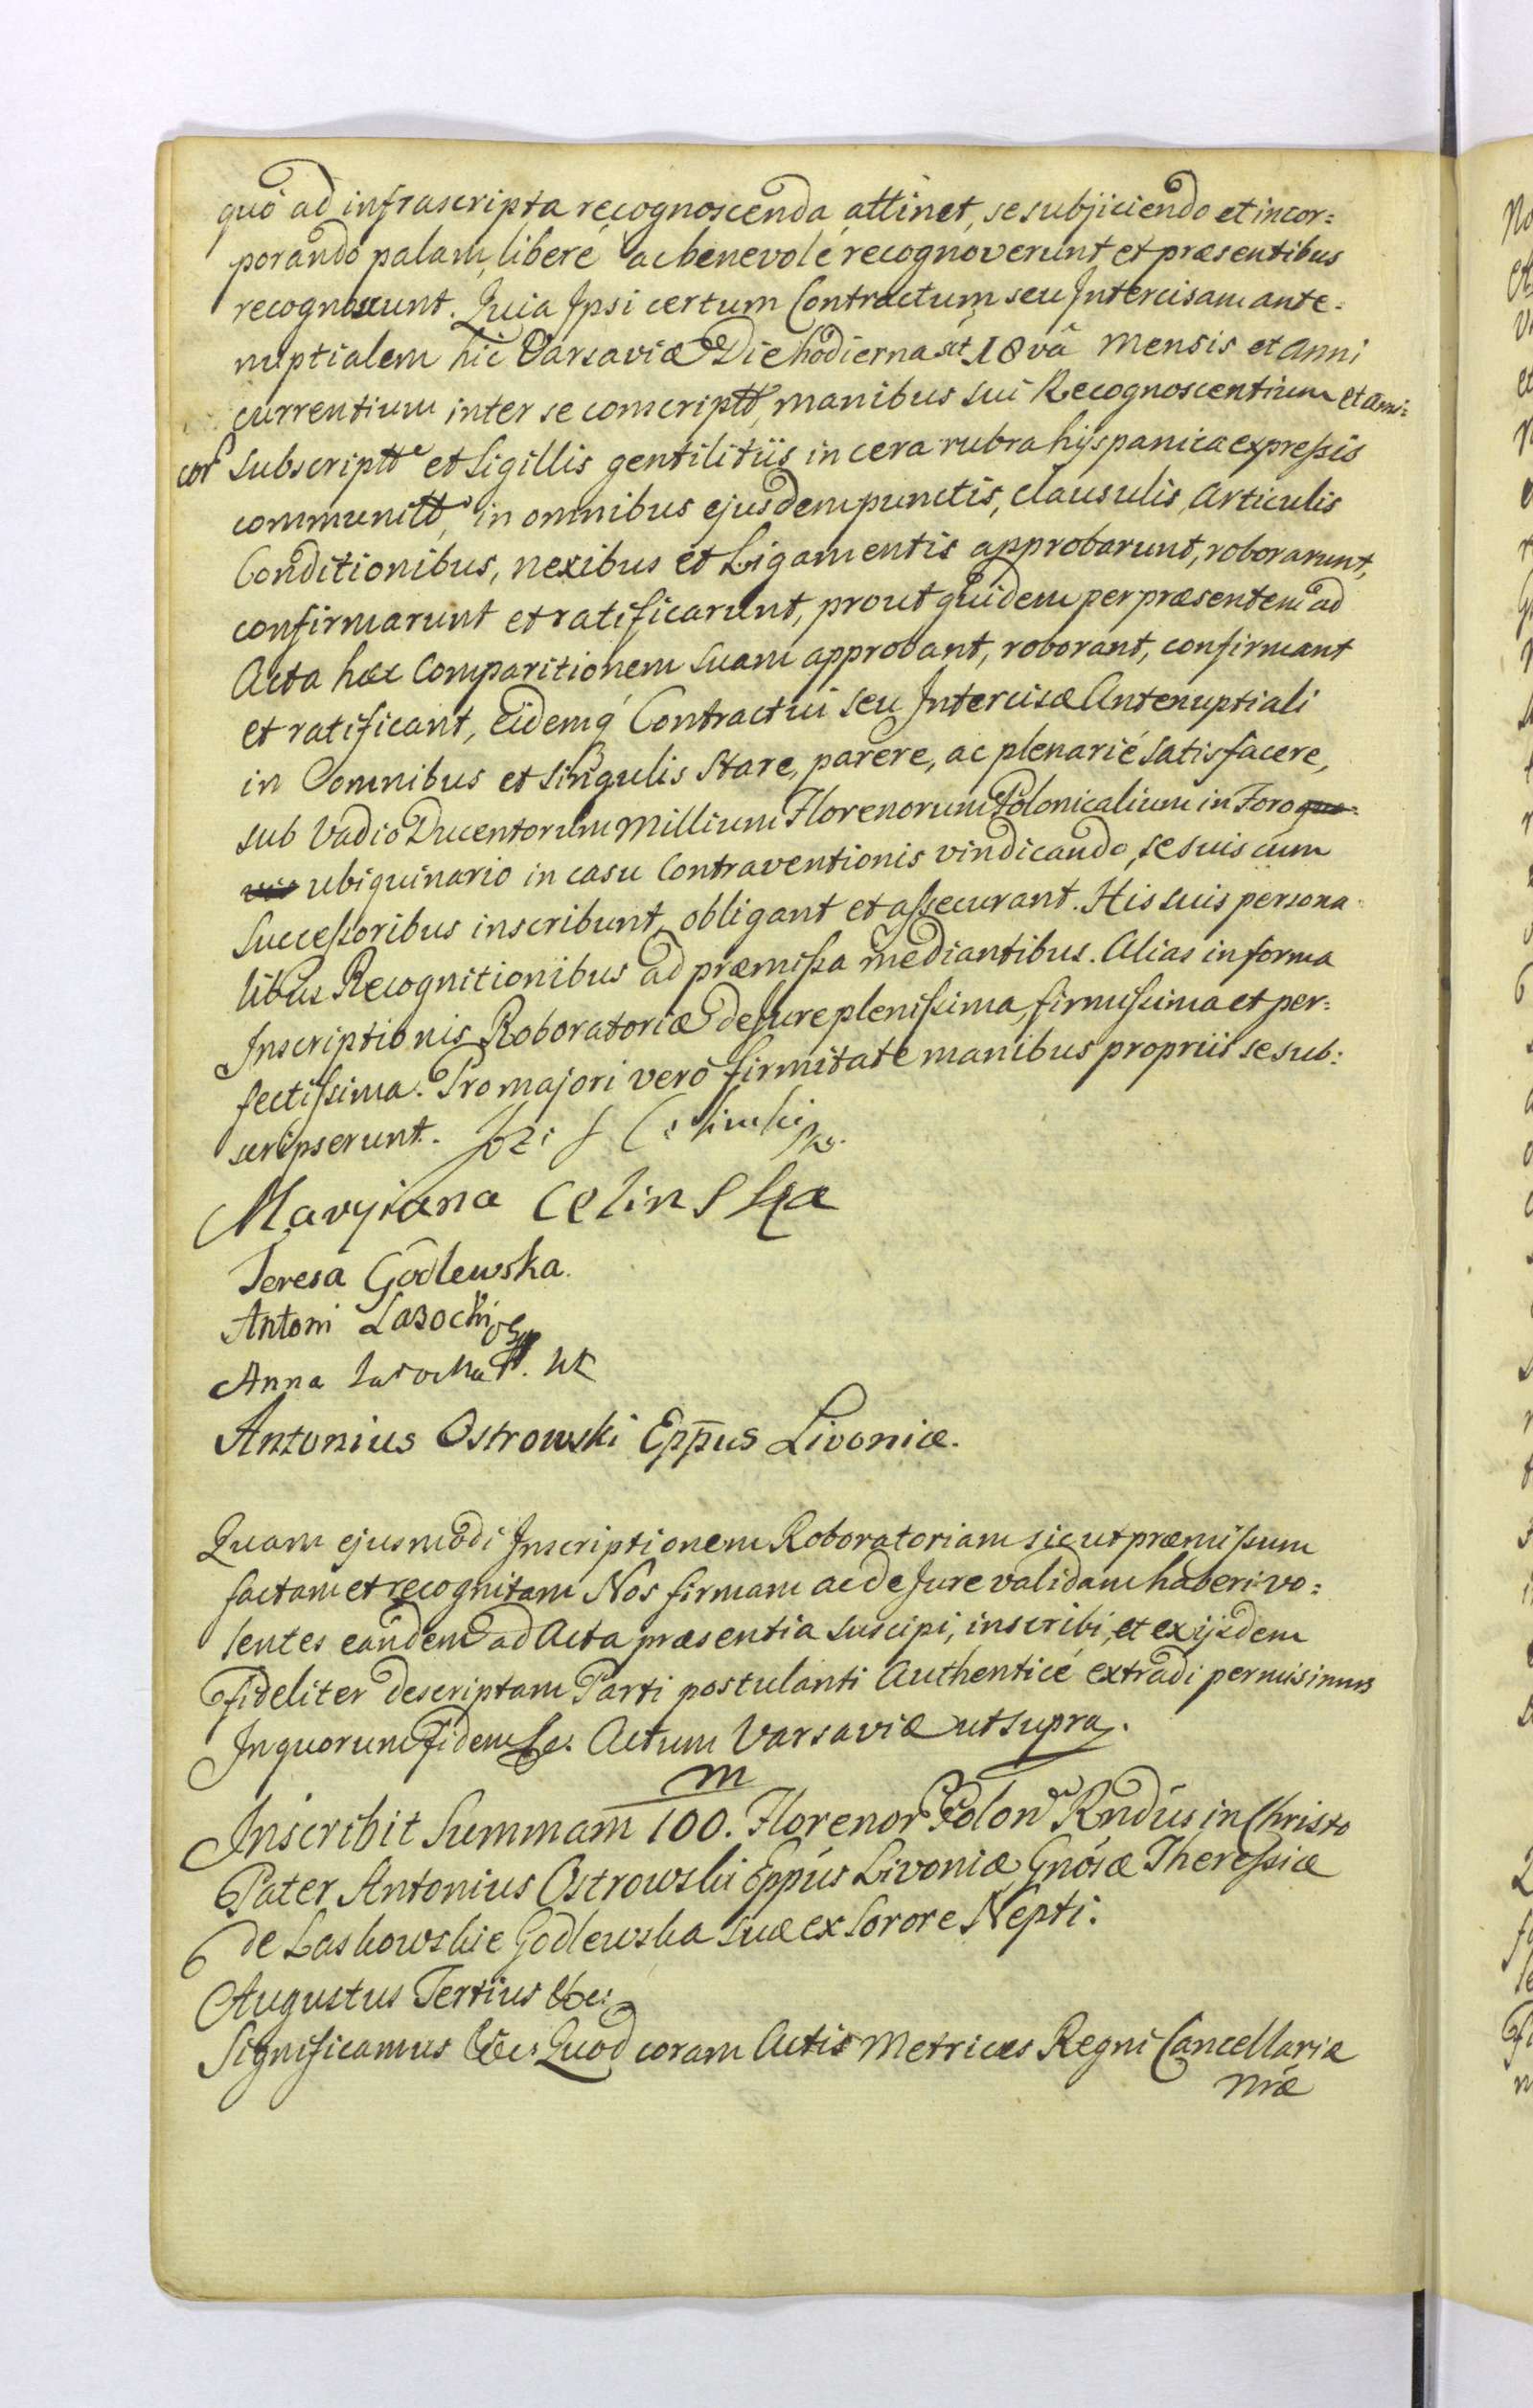 quó ad infrascripta recognoscenda attinet, se subjiciendo et incor=
porando palam, liberé ac benevolé recognoverunt et præsentibus
recognoscunt. Quia Ipsi certum Contractum seu Intercisam ante=
nuptialem hic Varsaviæ Die hodierna sct 18vâ mensis et Anni
currentium inter se conscriptt, manibus sui Recognoscentium et Ami=
cor subscriptt et Sigillis gentilitiis in cera rubra hyspanica expressis
communitt, in omnibus ejusdem punctis, clausulis, Articulis
Conditionibus, nexibus et Ligamentis approbarunt, roborarunt,
confirmarunt et ratificarunt, prout quidem per præsentem ad
Acta hæc Comparitionem suam approbant, roborant, confirmant
et ratificant, eidemq Contractui seu Intercisæ Antenuptiali
in Omnibus et singulis stare, parere, ac plenarié satisfacere,
sub Vadio Ducentorum Millium Florenorum Polonicalium in Foro quo=
vis ubiquinario in casu Contraventionis vindicando, se suis cum
Successoribus inscribunt, obligant et assecurant. His suis persona=
libus Recognitionibus ad præmissa mediantibus. Alias in forma
Inscriptionis Roboratoriæ de Jure plenissima, firmissima et per=
fectissima. Pro majori veró firmitate manibus propriis se sub=
scripserunt. Józef Celinski
Maryianna Celinska
Teresa Godlewska.
Antoni Lasocki
Anna Lasocka
Antonius Ostrowski Eppus Livoniæ.
Quam ejusmodi Inscriptionem Roboratoriam sic ut præmissum
factam et recognitam Nos firmam ac de Jure validam haberi vo=
lentes eandem ad Acta præsentia suscipi, inscribi, et ex ijsdem
fideliter descriptam Parti postulanti Authenticé extradi permisimus
In quorum Fidem &c. Actum Varsaviæ ut supra.
m
Inscribit Summam 100. Florenor Polon Rndus in Christo
Pater Antonius Ostrowski Eppus Livoniæ Gnósæ Theressiæ
de Laskowskie Godlewska suæ ex Sorore Nepti.
Augustus Tertius &c:
Significamus &c: Quod coram Actis Metrices Regni Cancellariæ
nræ